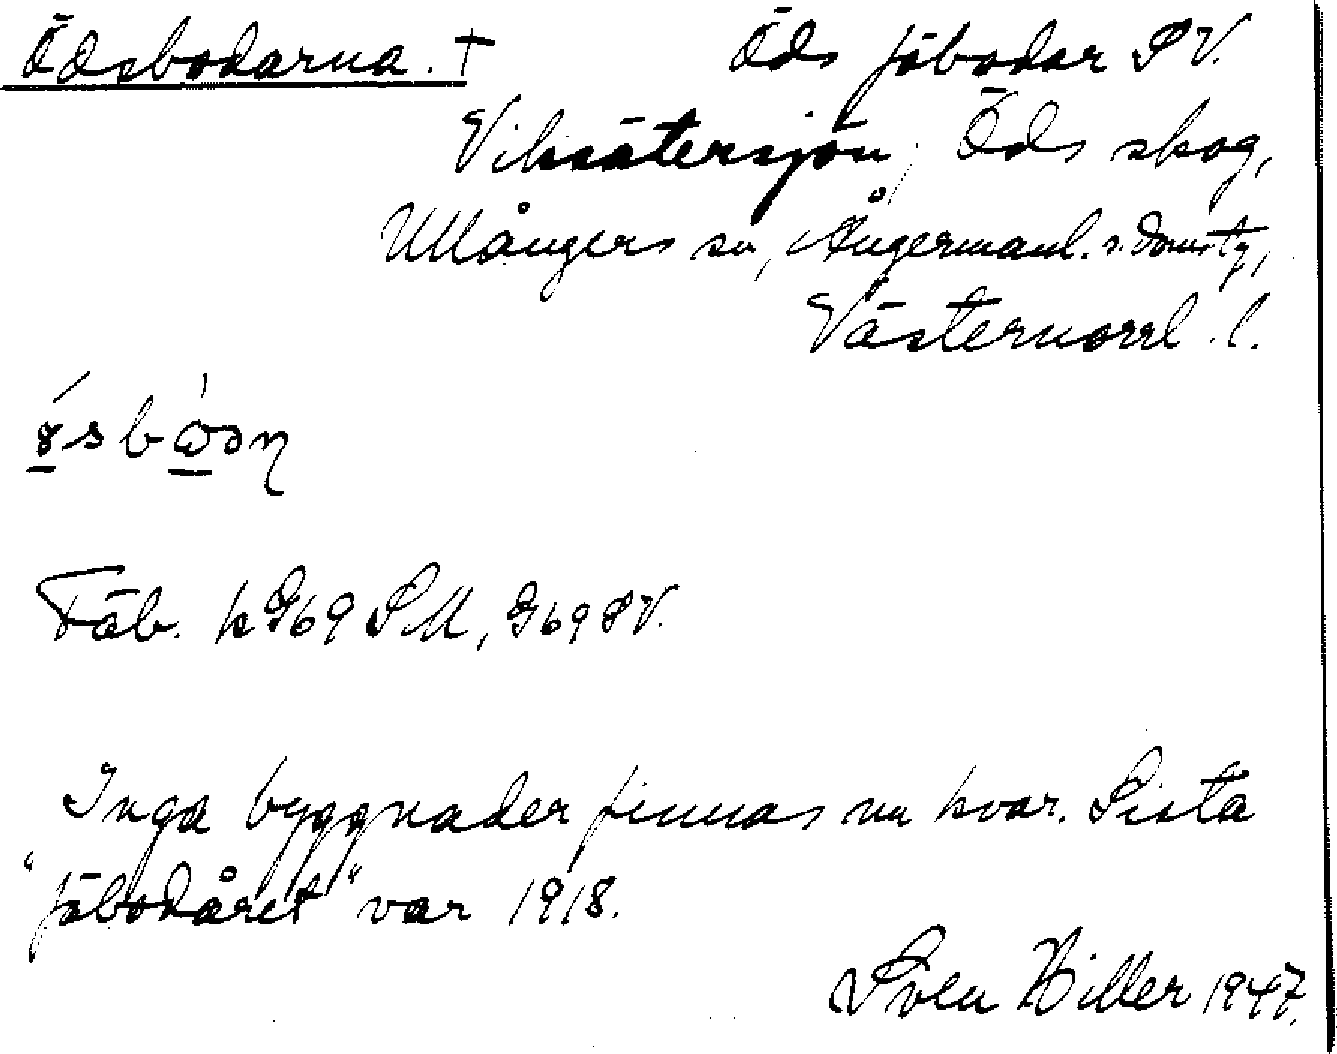 Ödsbodarna. † Öds fäbodar SV.
Viksätersjön, Öds skog,
Ullångers sn, Ångermanl. s. domstg,
Västernorrl. l.
Fäb. k G69 SM, G69 SV.
Inga byggnader finnas nu kvar. Sista
"fäbodåret" var 1918.
Sven Hiller 1947.